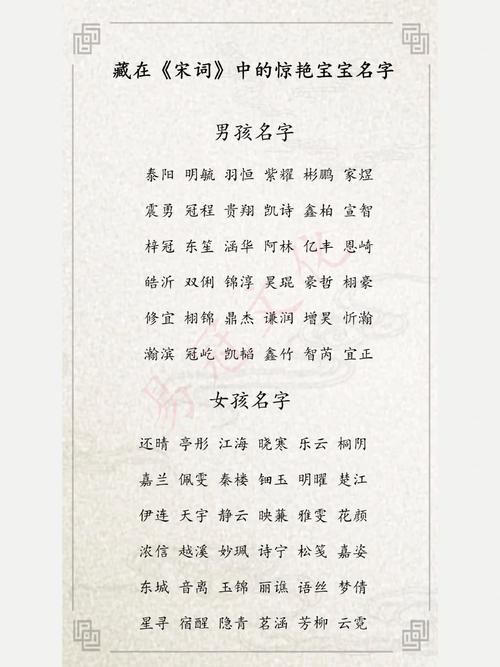 藏在《宋词》中的惊艳宝宝名字
男孩名字
泰阳 明毓 羽恒 紫耀 彬鹏 家煜
震勇 冠程 贵翔 凯诗 鑫柏 宣智
梓冠 东笙 涵华 阿林 亿丰 恩崎
皓沂 双俐 锦淳 昊琨 豪哲 栩豪
修宜 栩锦 鼎杰 谦润 增昊 忻瀚
瀚滨 冠屹 凯韬 鑫竹 智芮 宜正
女孩名字
还晴 亭彤 江海 晓寒 乐云 桐阴
嘉兰 佩雯 秦楼 钿玉 明曜 楚江
伊连 天宇 静云 映蒹 雅雯 花颜
浓信 越溪 妙珮 诗宁 松笺 嘉姿
东城 音离 玉锦 丽谯 语丝 梦倩
星寻 宿醒 隐青 茗涵 芳柳 云霓
易冠文化